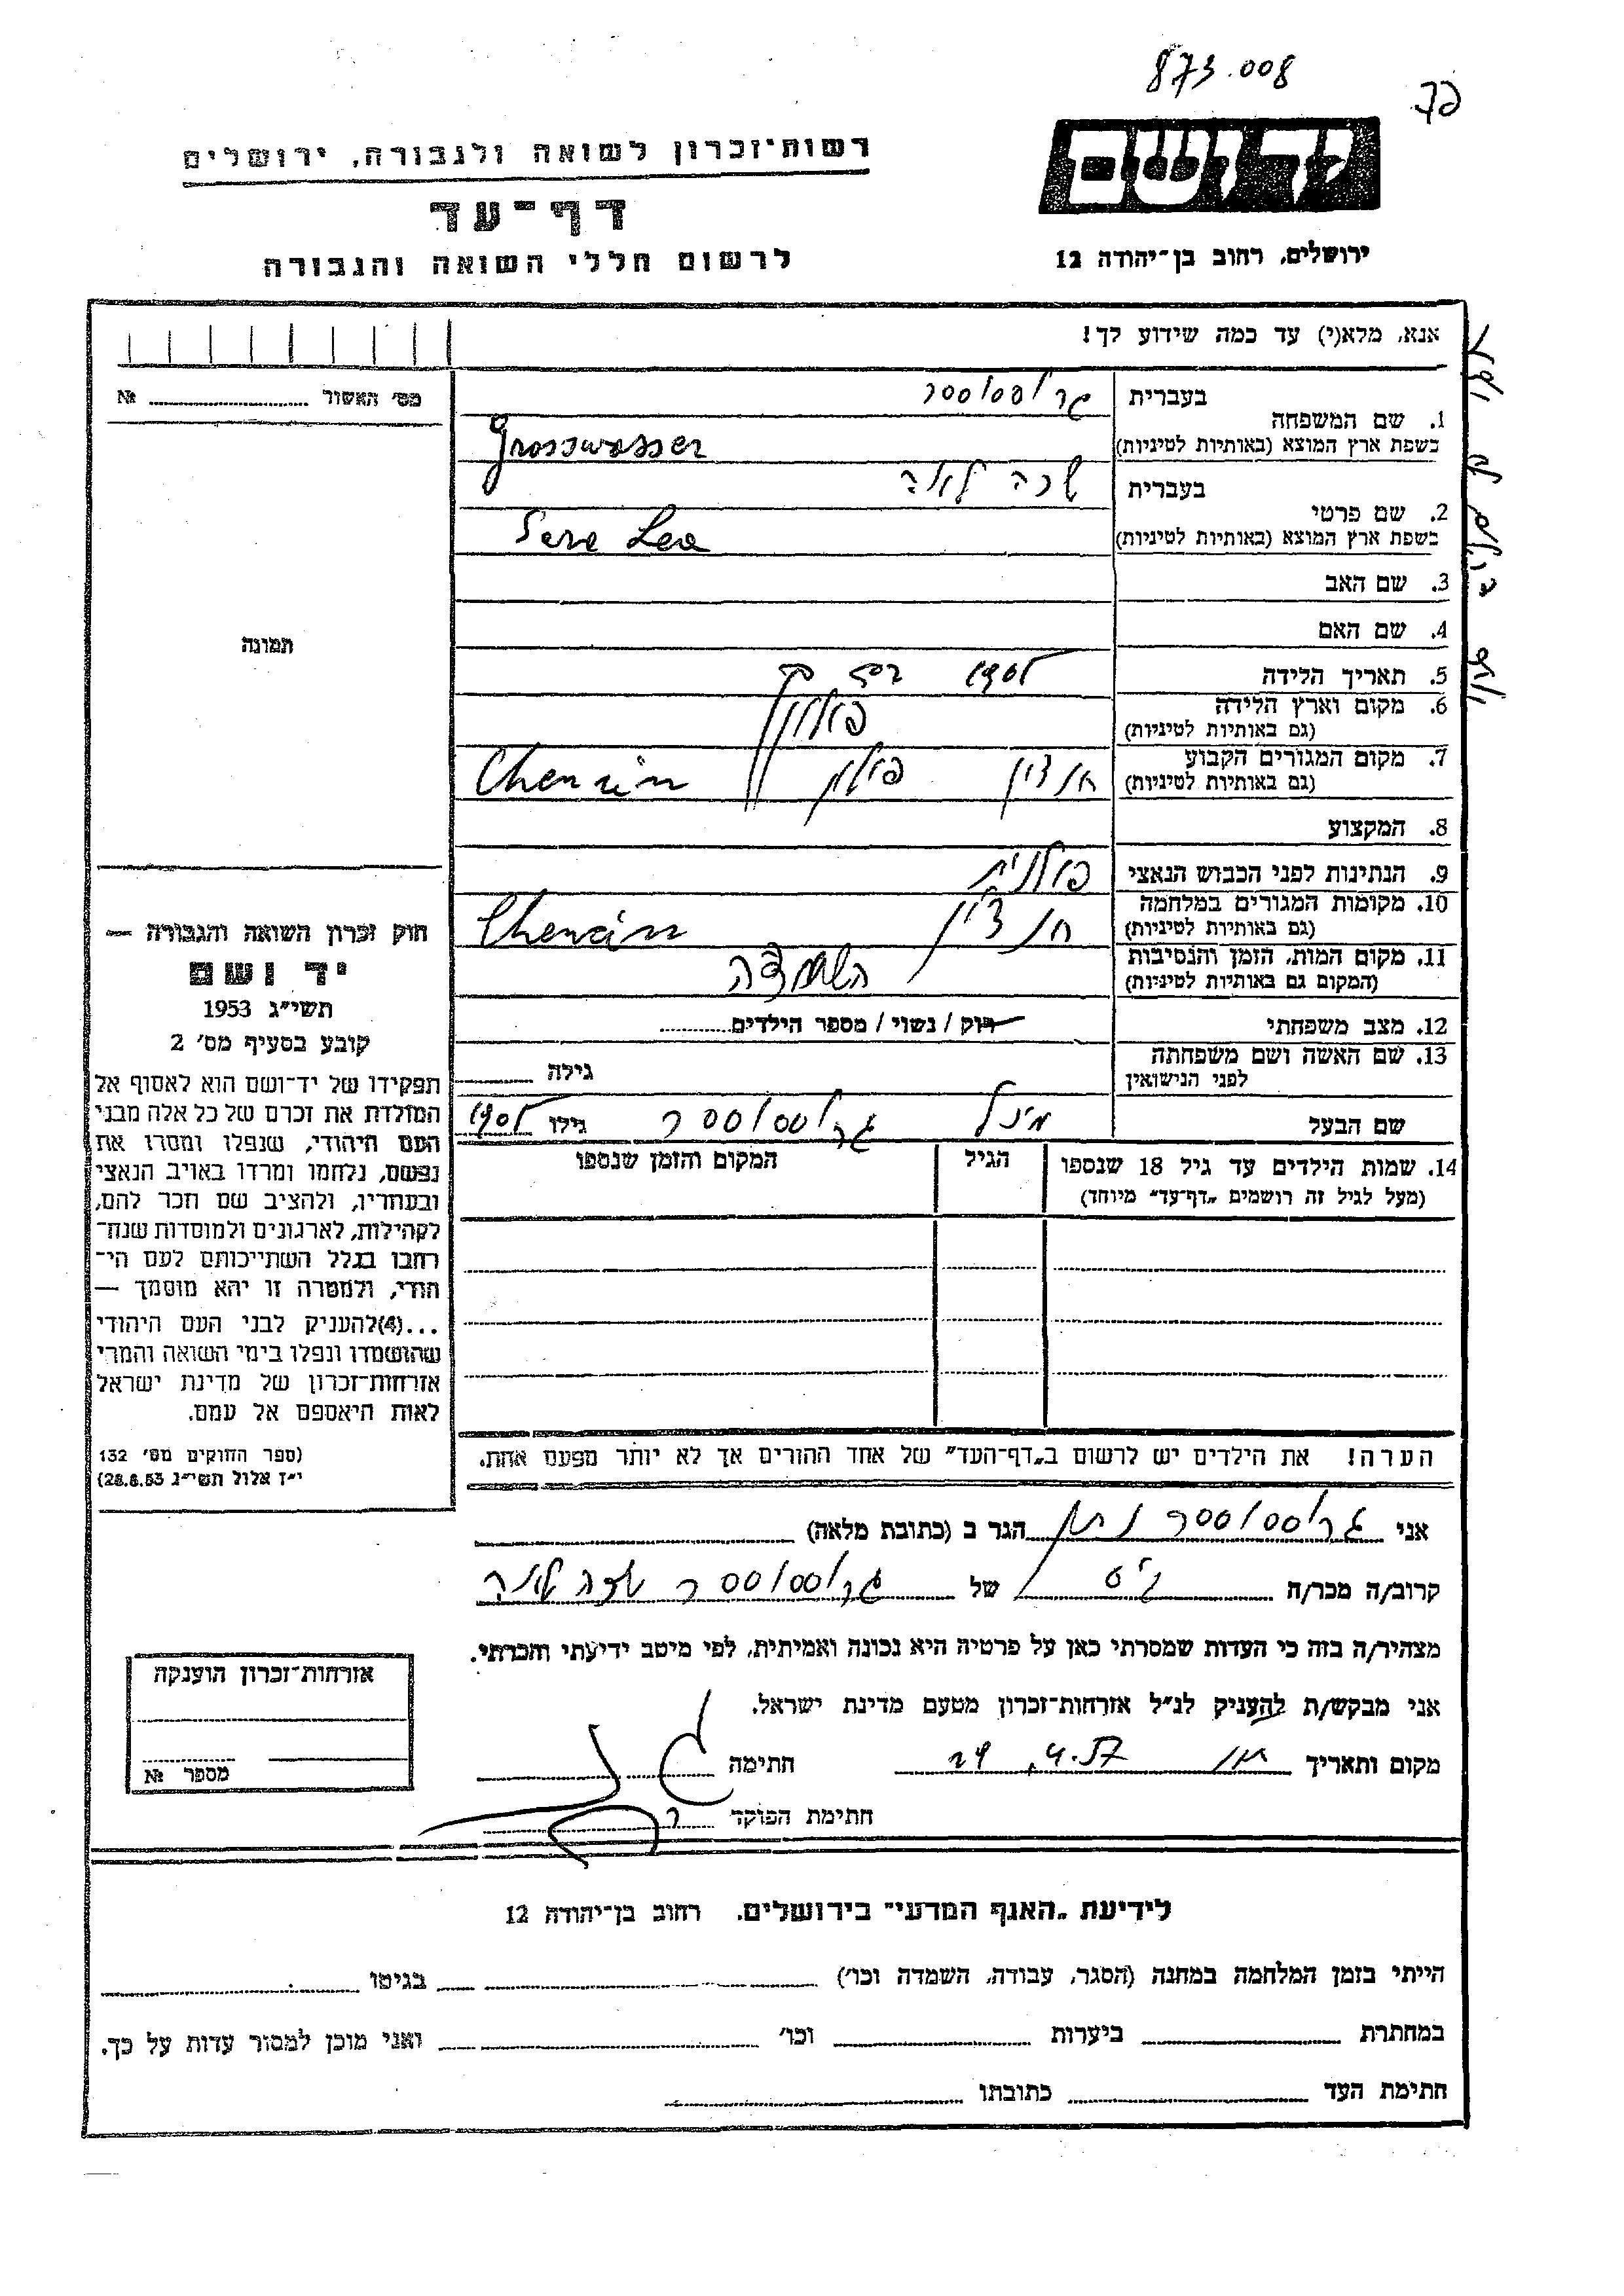 873.008
יד ושם
ירושלים, רחוב בן־יהודה 12
רשות־זכרון לשואה ולגבורה, ירושלים
דף־עד
לרשום חללי השואה והגבורה
אנא, מלא(י) עד כמה שידוע לך!
מס׳ האשור № ........
1. שם המשפחה
בעברית גרוסווסר
בשפת ארץ המוצא (באותיות לטיניות) Grosswasser
2. שם פרטי
בעברית שרה לאה
בשפת ארץ המוצא (באותיות לטיניות) Sara Lea
3. שם האב
4. שם האם
5. תאריך הלידה 1905
6. מקום וארץ הלידה פולין
(גם באותיות לטיניות)
7. מקום המגורים הקבוע פולין
(גם באותיות לטיניות)
8. המקצוע
9. הנתינות לפני הכבוש הנאצי פולנית
10. מקומות המגורים במלחמה
(גם באותיות לטיניות)
11. מקום המות, הזמן והנסיבות השמדה
(המקום גם באותיות לטיניות)
12. מצב משפחתי רוק / נשוי / מספר הילדים........
13. שם האשה ושם משפחתה
לפני הנישואין גילה
שם הבעל גרוסווסר גילו 1905
14. שמות הילדים עד גיל 18 שנספו הגיל המקום והזמן שנספו
(מעל לגיל זה רושמים „דף־עד״ מיוחד)
הערה! את הילדים יש לרשום ב„דף־העד״ של אחד ההורים אך לא יותר מפעם אחת.
תמונה
חוק זכרון השואה והגבורה —
יד ושם
תשי״ג 1953
קובע בסעיף מס׳ 2
תפקידו של יד־ושם הוא לאסוף אל
המולדת את זכרם של כל אלה מבני
העם היהודי, שנפלו ומסרו את
נפשם, נלחמו ומרדו באויב הנאצי
ובעוזריו, ולהציב שם וזכר להם,
לקהילות, לארגונים ולמוסדות שנח־
רבו בגלל השתייכותם לעם הי־
הודי, ולמטרה זו יהא מוסמך —
...(4)להעניק לבני העם היהודי
שהושמדו ונפלו בימי השואה והמרי
אזרחות־זכרון של מדינת ישראל
לאות היאספם אל עמם.
(ספר החוקים מס׳ 132
י״ז אלול תשי״ג 28.8.53)
אני גרוסווסר נתן הגר ב (כתובת מלאה)
קרוב/ה מכר/ה גיס של גרוסווסר שרה לאה
מצהיר/ה בזה כי העדות שמסרתי כאן על פרטיה היא נכונה ואמיתית, לפי מיטב ידיעתי והכרתי.
אני מבקש/ת להעניק לנ״ל אזרחות־זכרון מטעם מדינת ישראל.
מקום ותאריך חתימה
חתימת הפוקד
אזרחות־זכרון הוענקה
מספר №
לידיעת „האגף המדעי״ בירושלים, רחוב בן־יהודה 12
הייתי בזמן המלחמה במחנה (הסגר, עבודה, השמדה וכו׳) בגיטו
במחתרת ביערות וכו׳ ואני מוכן למסור עדות על כך.
חתימת העד כתובתו